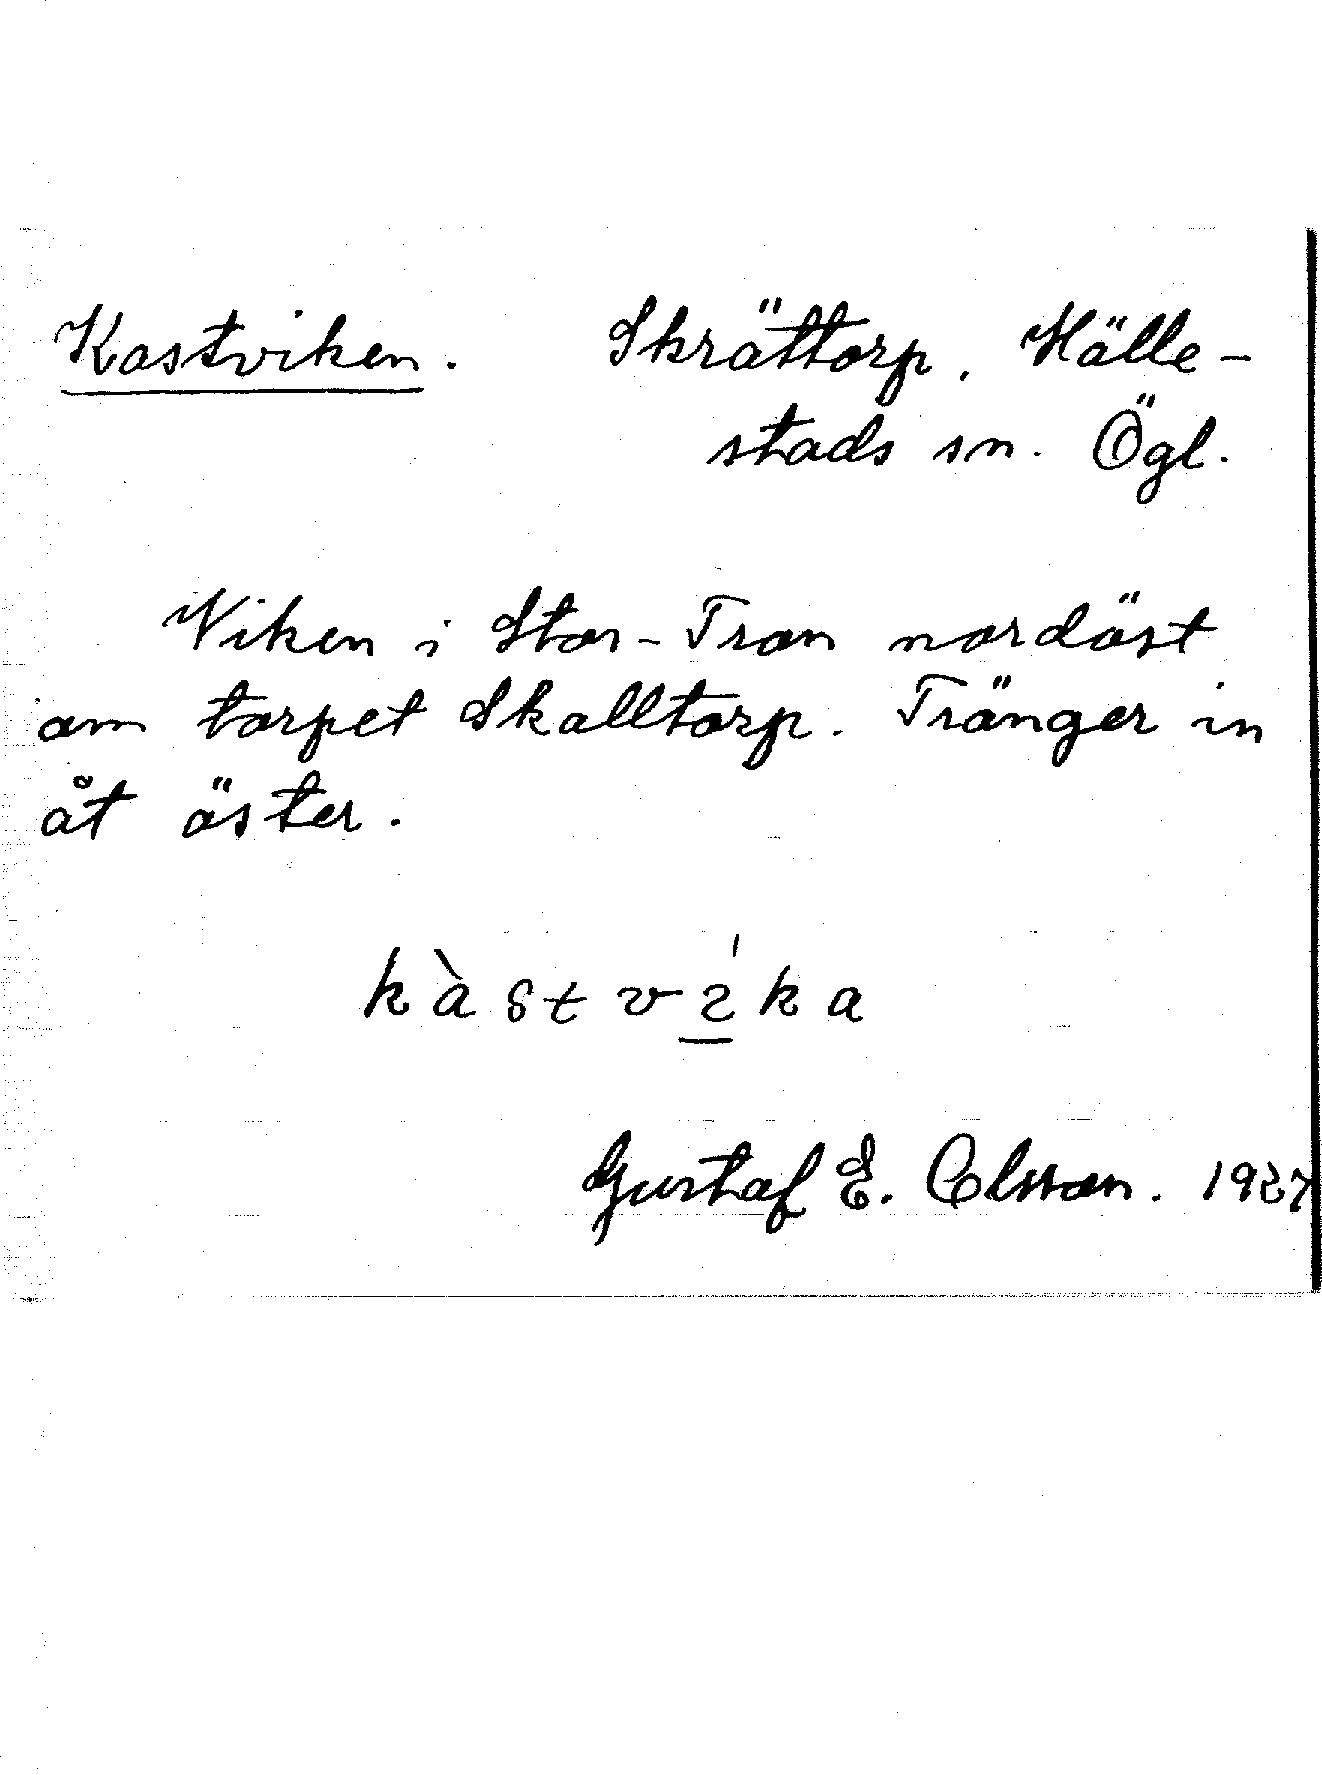 Kastviken. Skrättorp, Hälle-
stads sn. Ögl.
Viken i Stor-Tron nordöst
om torpet Skalltorp. Tränger in
åt öster.
kàstvı̍ka
Gustaf E. Olsson. 1927